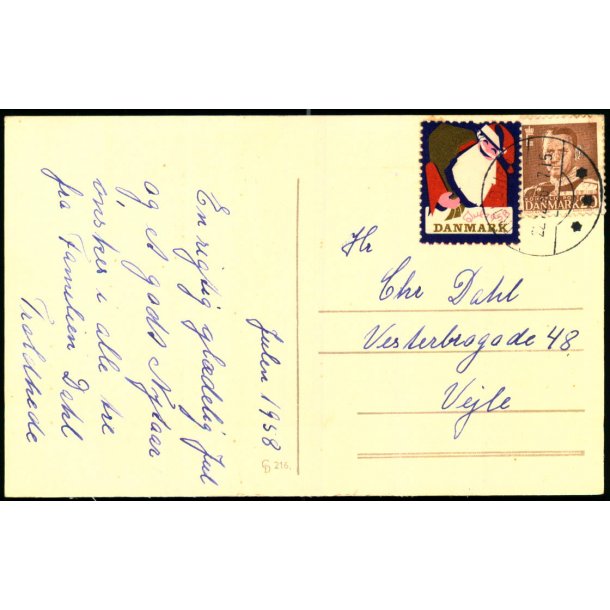 Julen 1958
En rigtig glædelig Jul
og et godt Nytaar
ønskes i alle tre
fra Familien Dahl
Troldhede
216.
Jul 1958
DANMARK
DANMARK
Hr
Chr Dahl
Vesterbrogade 48
Vejle